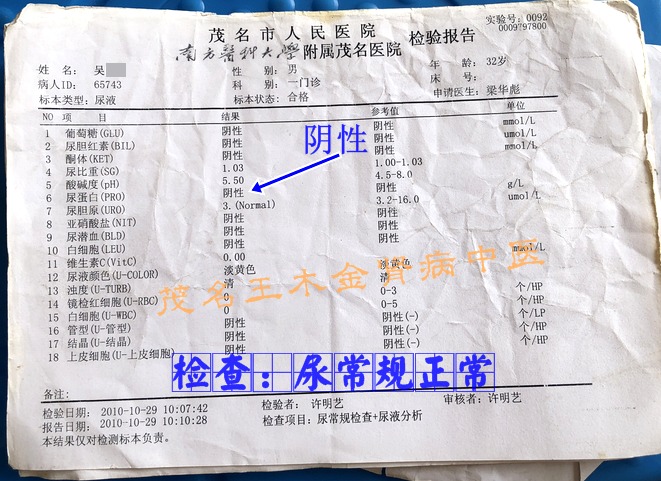 茂名市人民医院
南方医科大学附属茂名医院 检验报告
实验号: 0092
0009797800
姓 名: 吴
性 别: 男
年 龄: 32岁
病人ID: 65743
科 别: 一门诊
床 号:
标本类型: 尿液
标本状态: 合格
申请医生: 梁华彪
NO 项 目 结果 参考值 单位
1 葡萄糖(GLU) 阴性 阴性 mmol/L
2 尿胆红素(BIL) 阴性 阴性 umol/L
3 酮体(KET) 阴性 阴性 mmol/L
4 尿比重(SG) 1.03 1.00-1.03
5 酸碱度(pH) 5.50 4.5-8.0
6 尿蛋白(PRO) 阴性 阴性 g/L
7 尿胆原(URO) 3.(Normal) 3.2-16.0 umol/L
8 亚硝酸盐(NIT) 阴性 阴性
9 尿潜血(BLD) 阴性 阴性
10 白细胞(LEU) 阴性 阴性
11 维生素C(VitC) 0.00 mmol/L
12 尿液颜色(U-COLOR) 淡黄色 淡黄色
13 浊度(U-TURB) 清 清
14 镜检红细胞(U-RBC) 0 0-3 个/HP
15 白细胞(U-WBC) 0 0-5 个/HP
16 管型(U-管型) 阴性 阴性(-) 个/LP
17 结晶(U-结晶) 阴性 阴性(-) 个/HP
18 上皮细胞(U-上皮细胞) 阴性 阴性(-) 个/HP
阴性
茂名王木金肾病中医
检查：尿常规正常
备注:
检验日期: 2010-10-29 10:07:42
检验者: 许明艺
审核者: 许明艺
报告日期: 2010-10-29 10:10:28
检查项目: 尿常规检查+尿液分析
本结果仅对检测标本负责。